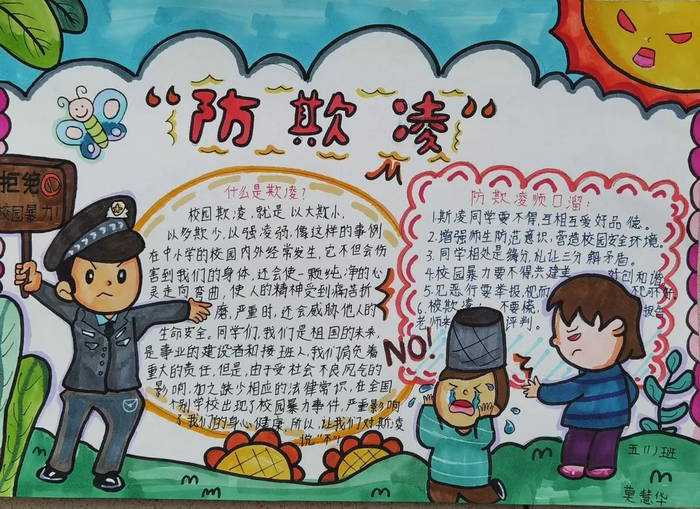 “防欺凌”
拒绝
校园暴力!
什么是欺凌?
校园欺凌,就是以大欺小,
以多欺少,以强凌弱,像这样的事例
在中小学的校园内外经常发生,它不但会伤
害到我们的身体,还会使一颗纯净的心
灵走向弯曲,使人的精神受到痛苦折
磨,严重时,还会威胁他人的
生命安全。同学们,我们是祖国的未来,
是事业的建设者和接班人,我们肩负着
重大的责任,但是,由于受社会不良风气的
影响,加之缺少相应的法律常识,在全国
个别学校出现了校园暴力事件,严重影响
了我们的身心健康,所以,让我们对欺凌
说“不”
防欺凌顺口溜:
1.欺凌同学要不得,互相互爱好品德。
2.增强师生防范意识,营造校园安全环境。
3.同学相处是缘分,礼让三分解矛盾。
4.校园暴力要不得,共建 和谐
5.犯恶行要举报,
6.被欺凌 不要 报告
老师来 评判。
NO!
五(1)班
莫慧华